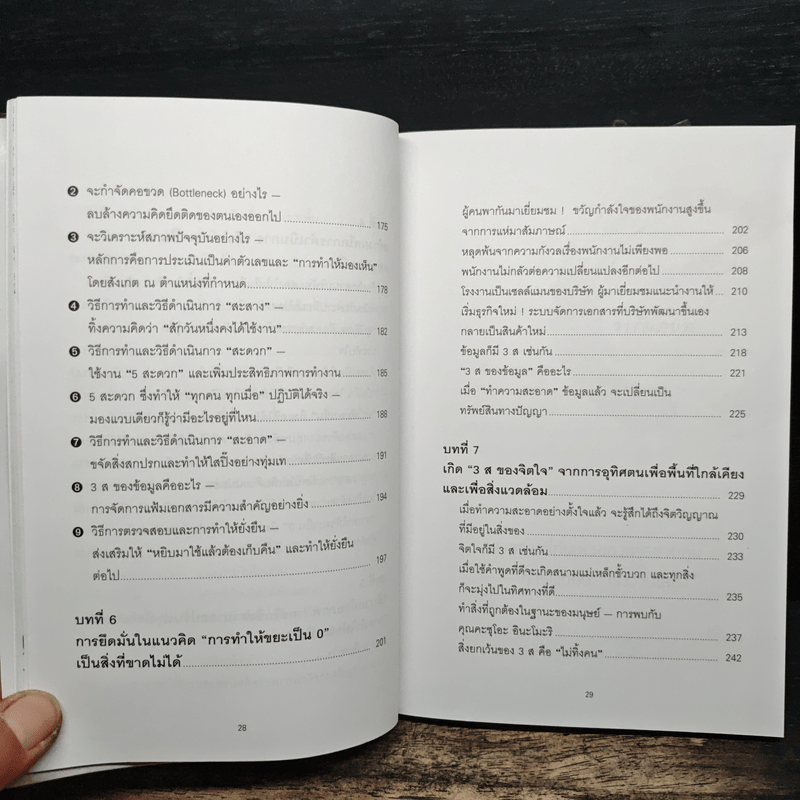 ❷ จะกำจัดคอขวด (Bottleneck) อย่างไร –
ลบล้างความคิดยึดติดของตนเองออกไป 175
❸ จะวิเคราะห์สภาพปัจจุบันอย่างไร –
หลักการคือการประเมินเป็นค่าตัวเลขและ “การทำให้มองเห็น”
โดยสังเกต ณ ตำแหน่งที่กำหนด 178
❹ วิธีการทำและวิธีดำเนินการ “สะสาง” –
ทิ้งความคิดว่า “สักวันหนึ่งคงได้ใช้งาน” 182
❺ วิธีการทำและวิธีดำเนินการ “สะดวก” –
ใช้งาน “5 สะดวก” และเพิ่มประสิทธิภาพการทำงาน 185
❻ 5 สะดวก ซึ่งทำให้ “ทุกคน ทุกเมื่อ” ปฏิบัติได้จริง –
มองแวบเดียวก็รู้ว่ามีอะไรอยู่ที่ไหน 188
❼ วิธีการทำและวิธีดำเนินการ “สะอาด” –
ขจัดสิ่งสกปรกและทำให้ใสปิ๊งอย่างทุ่มเท 191
❽ 3 ส ของข้อมูลคืออะไร –
การจัดการแฟ้มเอกสารมีความสำคัญอย่างยิ่ง 194
❾ วิธีการตรวจสอบและการทำให้ยั่งยืน –
ส่งเสริมให้ “หยิบมาใช้แล้วต้องเก็บคืน” และทำให้ยั่งยืน
ต่อไป 197
บทที่ 6
การยึดมั่นในแนวคิด “การทำให้ขยะเป็น 0”
เป็นสิ่งที่ขาดไม่ได้ 201
28
ผู้คนพากันมาเยี่ยมชม ! ขวัญกำลังใจของพนักงานสูงขึ้น
จากการแห่มาสัมภาษณ์ 202
หลุดพ้นจากความกังวลเรื่องพนักงานไม่เพียงพอ 206
พนักงานไม่กลัวต่อความเปลี่ยนแปลงอีกต่อไป 208
โรงงานเป็นเซลส์แมนของบริษัท ผู้มาเยี่ยมชมแนะนำงานให้ ... 210
เริ่มธุรกิจใหม่ ! ระบบจัดการเอกสารที่บริษัทพัฒนาขึ้นเอง
กลายเป็นสินค้าใหม่ 213
ข้อมูลก็มี 3 ส เช่นกัน 218
“3 ส ของข้อมูล” คืออะไร 221
เมื่อ “ทำความสะอาด” ข้อมูลแล้ว จะเปลี่ยนเป็น
ทรัพย์สินทางปัญญา 225
บทที่ 7
เกิด “3 ส ของจิตใจ” จากการอุทิศตนเพื่อพื้นที่ใกล้เคียง
และเพื่อสิ่งแวดล้อม 229
เมื่อทำความสะอาดอย่างตั้งใจแล้ว จะรู้สึกได้ถึงจิตวิญญาณ
ที่มีอยู่ในสิ่งของ 230
จิตใจก็มี 3 ส เช่นกัน 233
เมื่อใช้คำพูดที่ดีจะเกิดสนามแม่เหล็กขั้วบวก และทุกสิ่ง
ก็จะมุ่งไปในทิศทางที่ดี 235
ทำสิ่งที่ถูกต้องในฐานะของมนุษย์ – การพบกับ
คุณคะซุโอะ อินะโมะริ 237
สิ่งยกเว้นของ 3 ส คือ “ไม่ทิ้งคน” 242
29